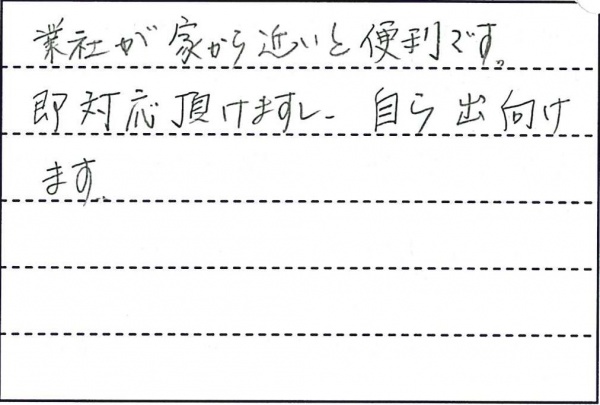 業社が家から近いと便利です。
即対応頂けますし、自ら出向け
ます。